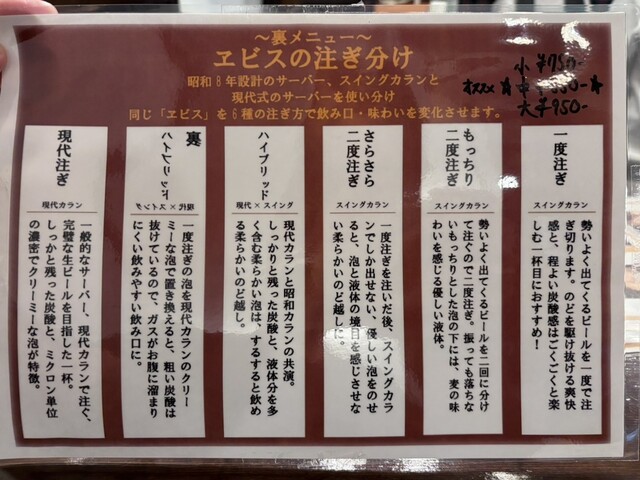 ～裏メニュー～
ヱビスの注ぎ分け
昭和8年設計のサーバー、スイングカランと
現代式のサーバーを使い分け
同じ「ヱビス」を6種の注ぎ方で飲み口・味わいを変化させます。
小 ¥750-
オススメ ☆中 ¥850-☆
大 ¥950-
一度注ぎ
スイングカラン
勢いよく出てくるビールを一度で注
ぎ切ります。のどを駆け抜ける爽快
感と、程よい炭酸感はごくごくと楽
しむ一杯目におすすめ！
もっちり
二度注ぎ
スイングカラン
勢いよく出てくるビールを二回に分け
て注ぐので二度注ぎ。振っても落ちな
いもっちりとした泡の下には、麦の味
わいを感じる優しい液体。
さらさら
二度注ぎ
スイングカラン
一度注ぎを注いだ後、スイングカラ
ンでしか出せない、優しい泡をのせ
ると、泡と液体の境目を感じさせな
い柔らかいのど越しに。
ハイブリッド
現代×スイング
現代カランと昭和カランの共演。
しっかりと残った炭酸と、液体分を多
く含む柔らかい泡は、するすると飲め
る柔らかなのど越し。
裏
ハイブリッド
現代×スイング
一度注ぎの泡を現代カランのクリー
ミーな泡で置き換えると、粗い炭酸は
抜けているので、ガスがお腹に溜まり
にくい飲みやすい飲み口に。
現代注ぎ
現代カラン
一般的なサーバー、現代カランで注ぐ、
完璧な生ビールを目指した一杯。
しっかと残った炭酸と、ミクロン単位
の濃密でクリーミーな泡が特徴。